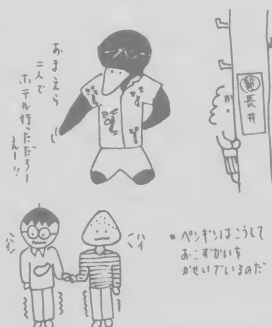 おまえら
二人で
ホテル行っただろー
えー!!
長井
ハイ
ハイ
• ペンギンはこうして
おこずかいを
かせいでいるのだ